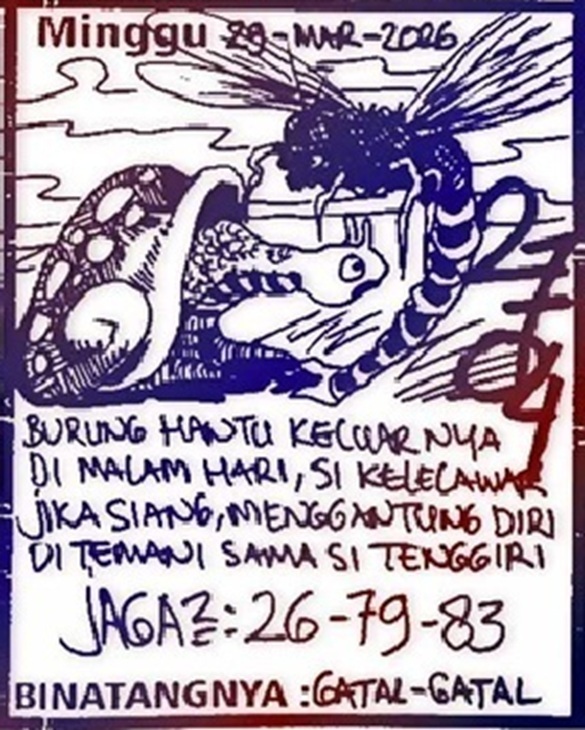 Minggu 29-MAR-2026
2
7
7
0
4
BURUNG HANTU KELUARNYA
DI MALAM HARI, SI KELELAWAR
JIKA SIANG, MENGGANTUNG DIRI
DI TEMANI SAMA SI TENGGIRI
JAGA2 : 26-79-83
BINATANGNYA : GATAL-GATAL